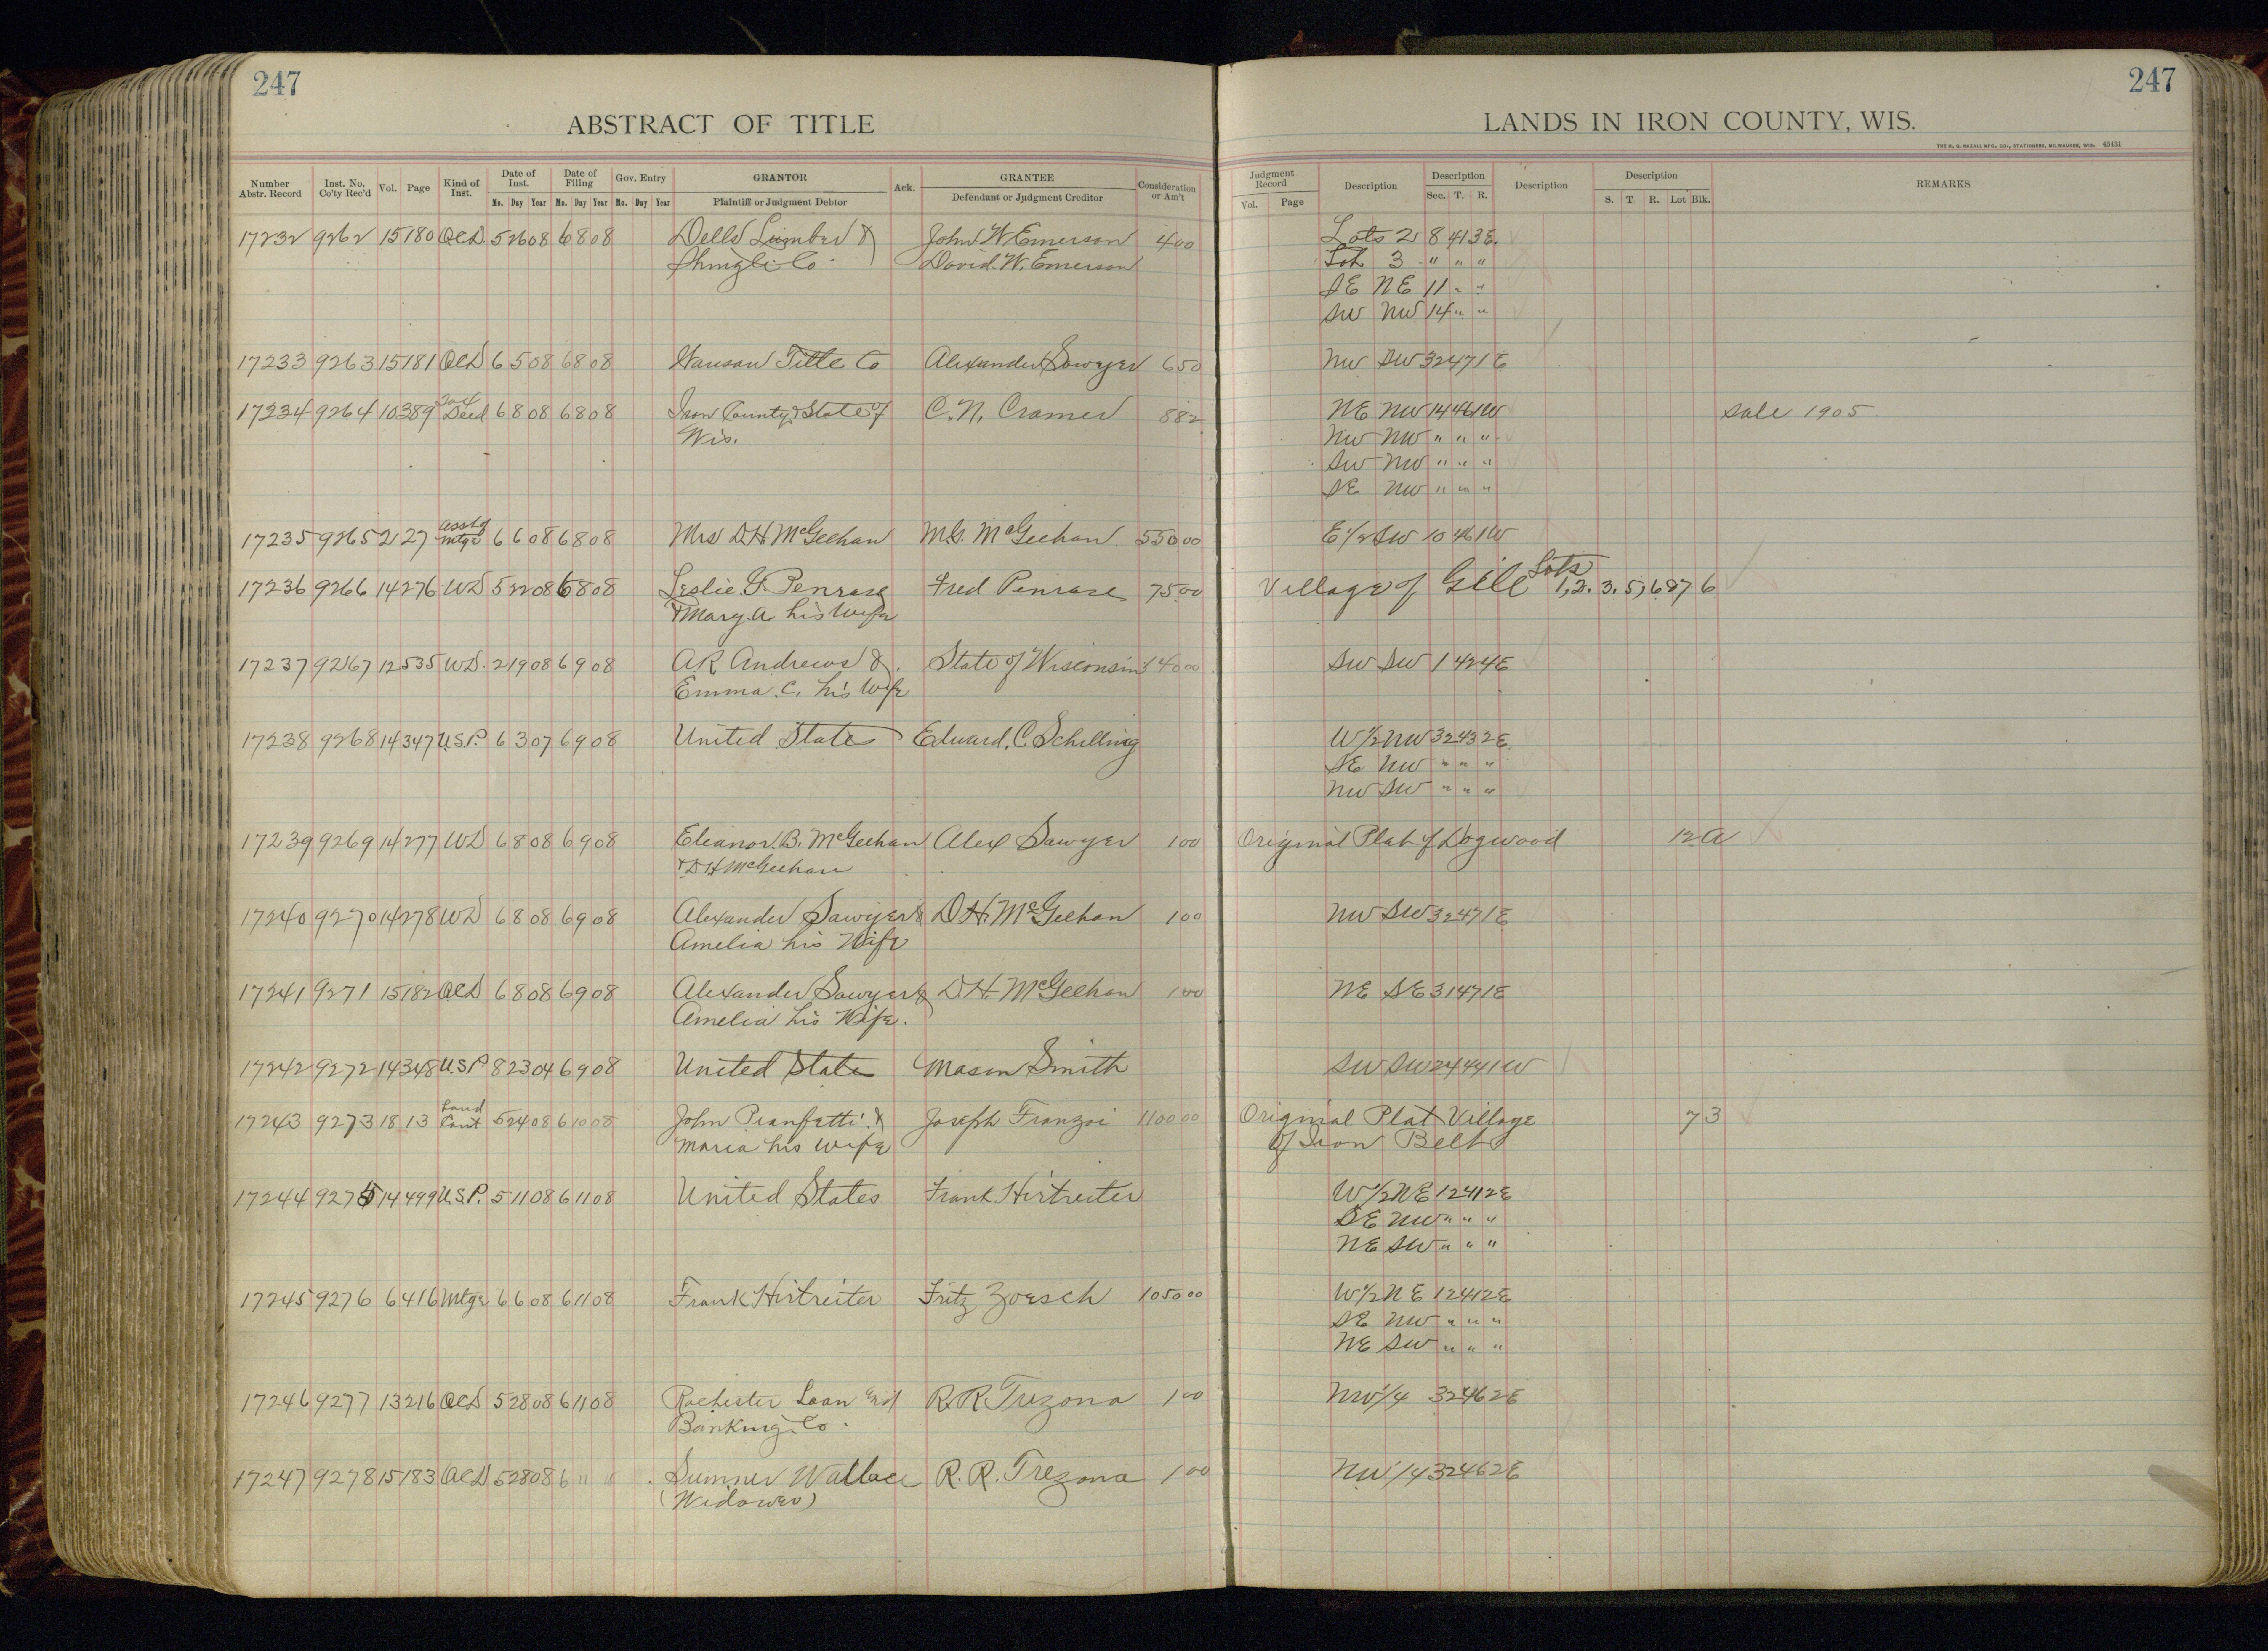 247
247
ABSTRACT OF TITLE
LANDS IN IRON COUNTY, WIS.
Number Abstr. Record | Inst. No. Co'ty Rec'd | Vol. | Page | Kind of Inst. | Date of Inst. Mo. Day Year | Date of Filing Mo. Day Year | Gov. Entry Mo. Day Year | GRANTOR Plaintiff or Judgment Debtor | Ack. | GRANTEE Defendant or Judgment Creditor | Consideration or Am't | Judgment Record Vol. Page | Description | Description Sec. T. R. | Description | Description S. T. R. Lot Blk. | REMARKS
17232 9262 15 180 QCD 5 26 08 6 8 08 Dells Lumber & John W Emerson 400 Lots 2 8 41 3 E.
Shingle Co. David. W. Emerson Lot 3 " " "
SE NE 11 " "
SW NW 14 " "
17233 9263 15 181 QCD 6 5 08 6 8 08 Wausau Title Co Alexander Sawyer 650 NW SW 32 47 1 E
17234 9264 10 389 Tax Deed 6 8 08 6 8 08 Iron County & State of C. N. Cramer 882 NE NW 14 46 1 W Sale 1905
Wis. NW NW " " "
SW NW " " "
SE NW " " "
17235 9265 2 27 Asst of Mtge 6 6 08 6 8 08 Mrs D.H. McGeehan M.G. McGeehan 550 00 E 1/2 SW 10 46 1 W
17236 9266 14 276 WD 5 22 08 6 8 08 Leslie G. Penrose Fred Penrose 75 00 Village of Gile Lots 1, 2. 3. 5, 6 & 7 6
& Mary A. his Wife
17237 9267 12 535 WD. 2 19 08 6 9 08 A R Andrews & State of Wisconsin 340 00 SW SW 1 42 4 E
Emma. C. his Wife
17238 9268 14 347 U.S.P. 6 3 07 6 9 08 United States Edward. C Schilling W 1/2 NW 32 43 2 E
SE NW " " "
NW SW " " "
17239 9269 14 277 WD 6 8 08 6 9 08 Eleanor. B. McGeehan Alex Sawyer 1 00 Original Plat of Dogwood 12 A
& D H McGeehan
17240 9270 14 278 WD 6 8 08 6 9 08 Alexander Sawyer & D.H. McGeehan 1 00 NW SW 32 47 1 E
Amelia his Wife
17241 9271 15 182 QCD 6 8 08 6 9 08 Alexander Sawyer & D.H. McGeehan 1 00 NE SE 31 47 1 E
Amelia his Wife.
17242 9272 14 348 U.S.P 8 23 04 6 9 08 United States Mason Smith SW SW 24 44 1 W
17243 9273 18 13 Land Cont 5 24 08 6 10 08 John Pianfetti & Joseph Franzoi 1100 00 Original Plat Village 7 3
Maria his wife of Iron Belt
17244 9275 14 499 U.S.P. 5 11 08 6 11 08 United States Frank Hirtreiter W 1/2 NE 12 41 2 E
SE NW " " "
NE SW " " "
17245 9276 6 416 Mtge 6 6 08 6 11 08 Frank Hirtreiter Fritz Zoesch 1050 00 W 1/2 N E 12 41 2 E
SE NW " " "
NE SW " " "
17246 9277 13 216 QCD 5 28 08 6 11 08 Rochester Loan and R.R. Trezona 1 00 NW 1/4 32 46 2 E
Banking Co.
17247 9278 15 183 QCD 5 28 08 6 " " Sumner Wallace R. R. Trezona 1 00 NW 1/4 32 46 2 E
(Widower)